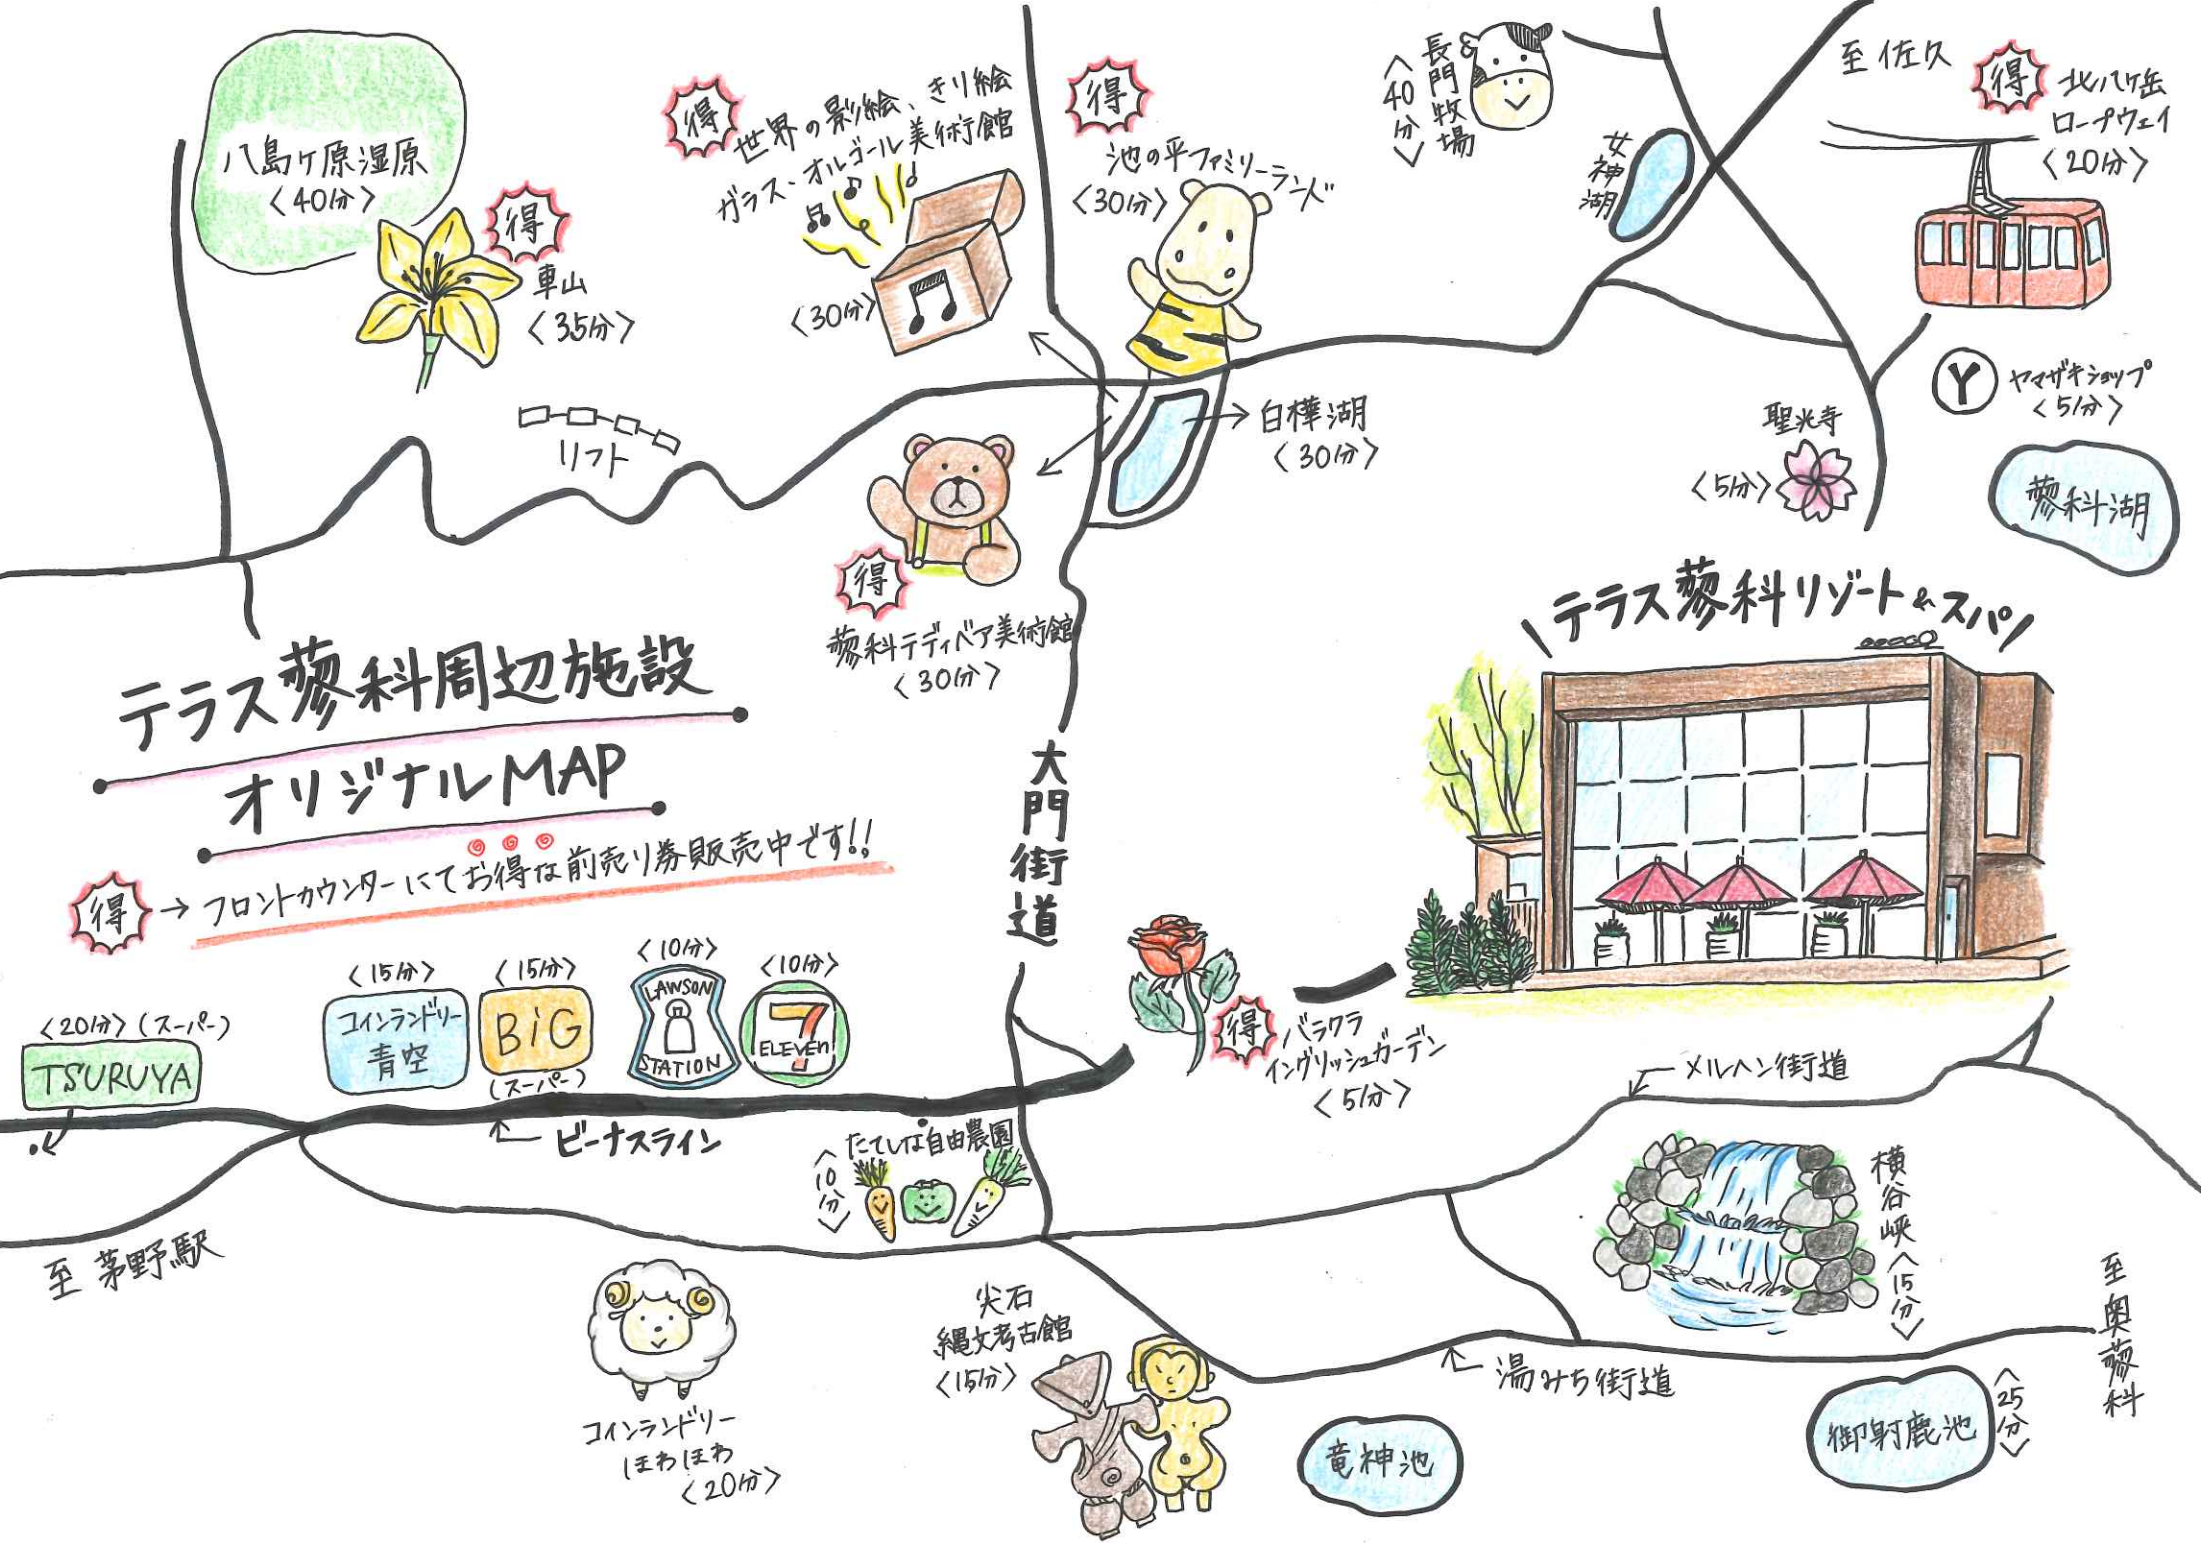 八島ヶ原湿原
〈40分〉
得
車山
〈35分〉
リフト
得
世界の影絵、きり絵
ガラス・オルゴール美術館
〈30分〉
得
池の平ファミリーランド
〈30分〉
長門牧場
〈40分〉
女神湖
至佐久
得
北八ヶ岳
ロープウェイ
〈20分〉
Y
ヤマザキショップ
〈5分〉
白樺湖
〈30分〉
聖光寺
〈5分〉
蓼科湖
得
蓼科テディベア美術館
〈30分〉
テラス蓼科リゾート&スパ
テラス蓼科周辺施設
オリジナルMAP
得→フロントカウンターにてお得な前売り券販売中です!!
大門街道
〈20分〉(スーパー)
TSURUYA
〈15分〉
コインランドリー
青空
〈15分〉
BiG
(スーパー)
〈10分〉
LAWSON
STATION
〈10分〉
7
ELEVEn
ビーナスライン
得
バラクラ
イングリッシュガーデン
〈5分〉
メルヘン街道
たてしな自由農園
〈10分〉
至茅野駅
横谷峡〈15分〉
至奥蓼科
コインランドリー
ほわほわ
〈20分〉
尖石
縄文考古館
〈15分〉
湯みち街道
竜神池
御射鹿池
〈25分〉